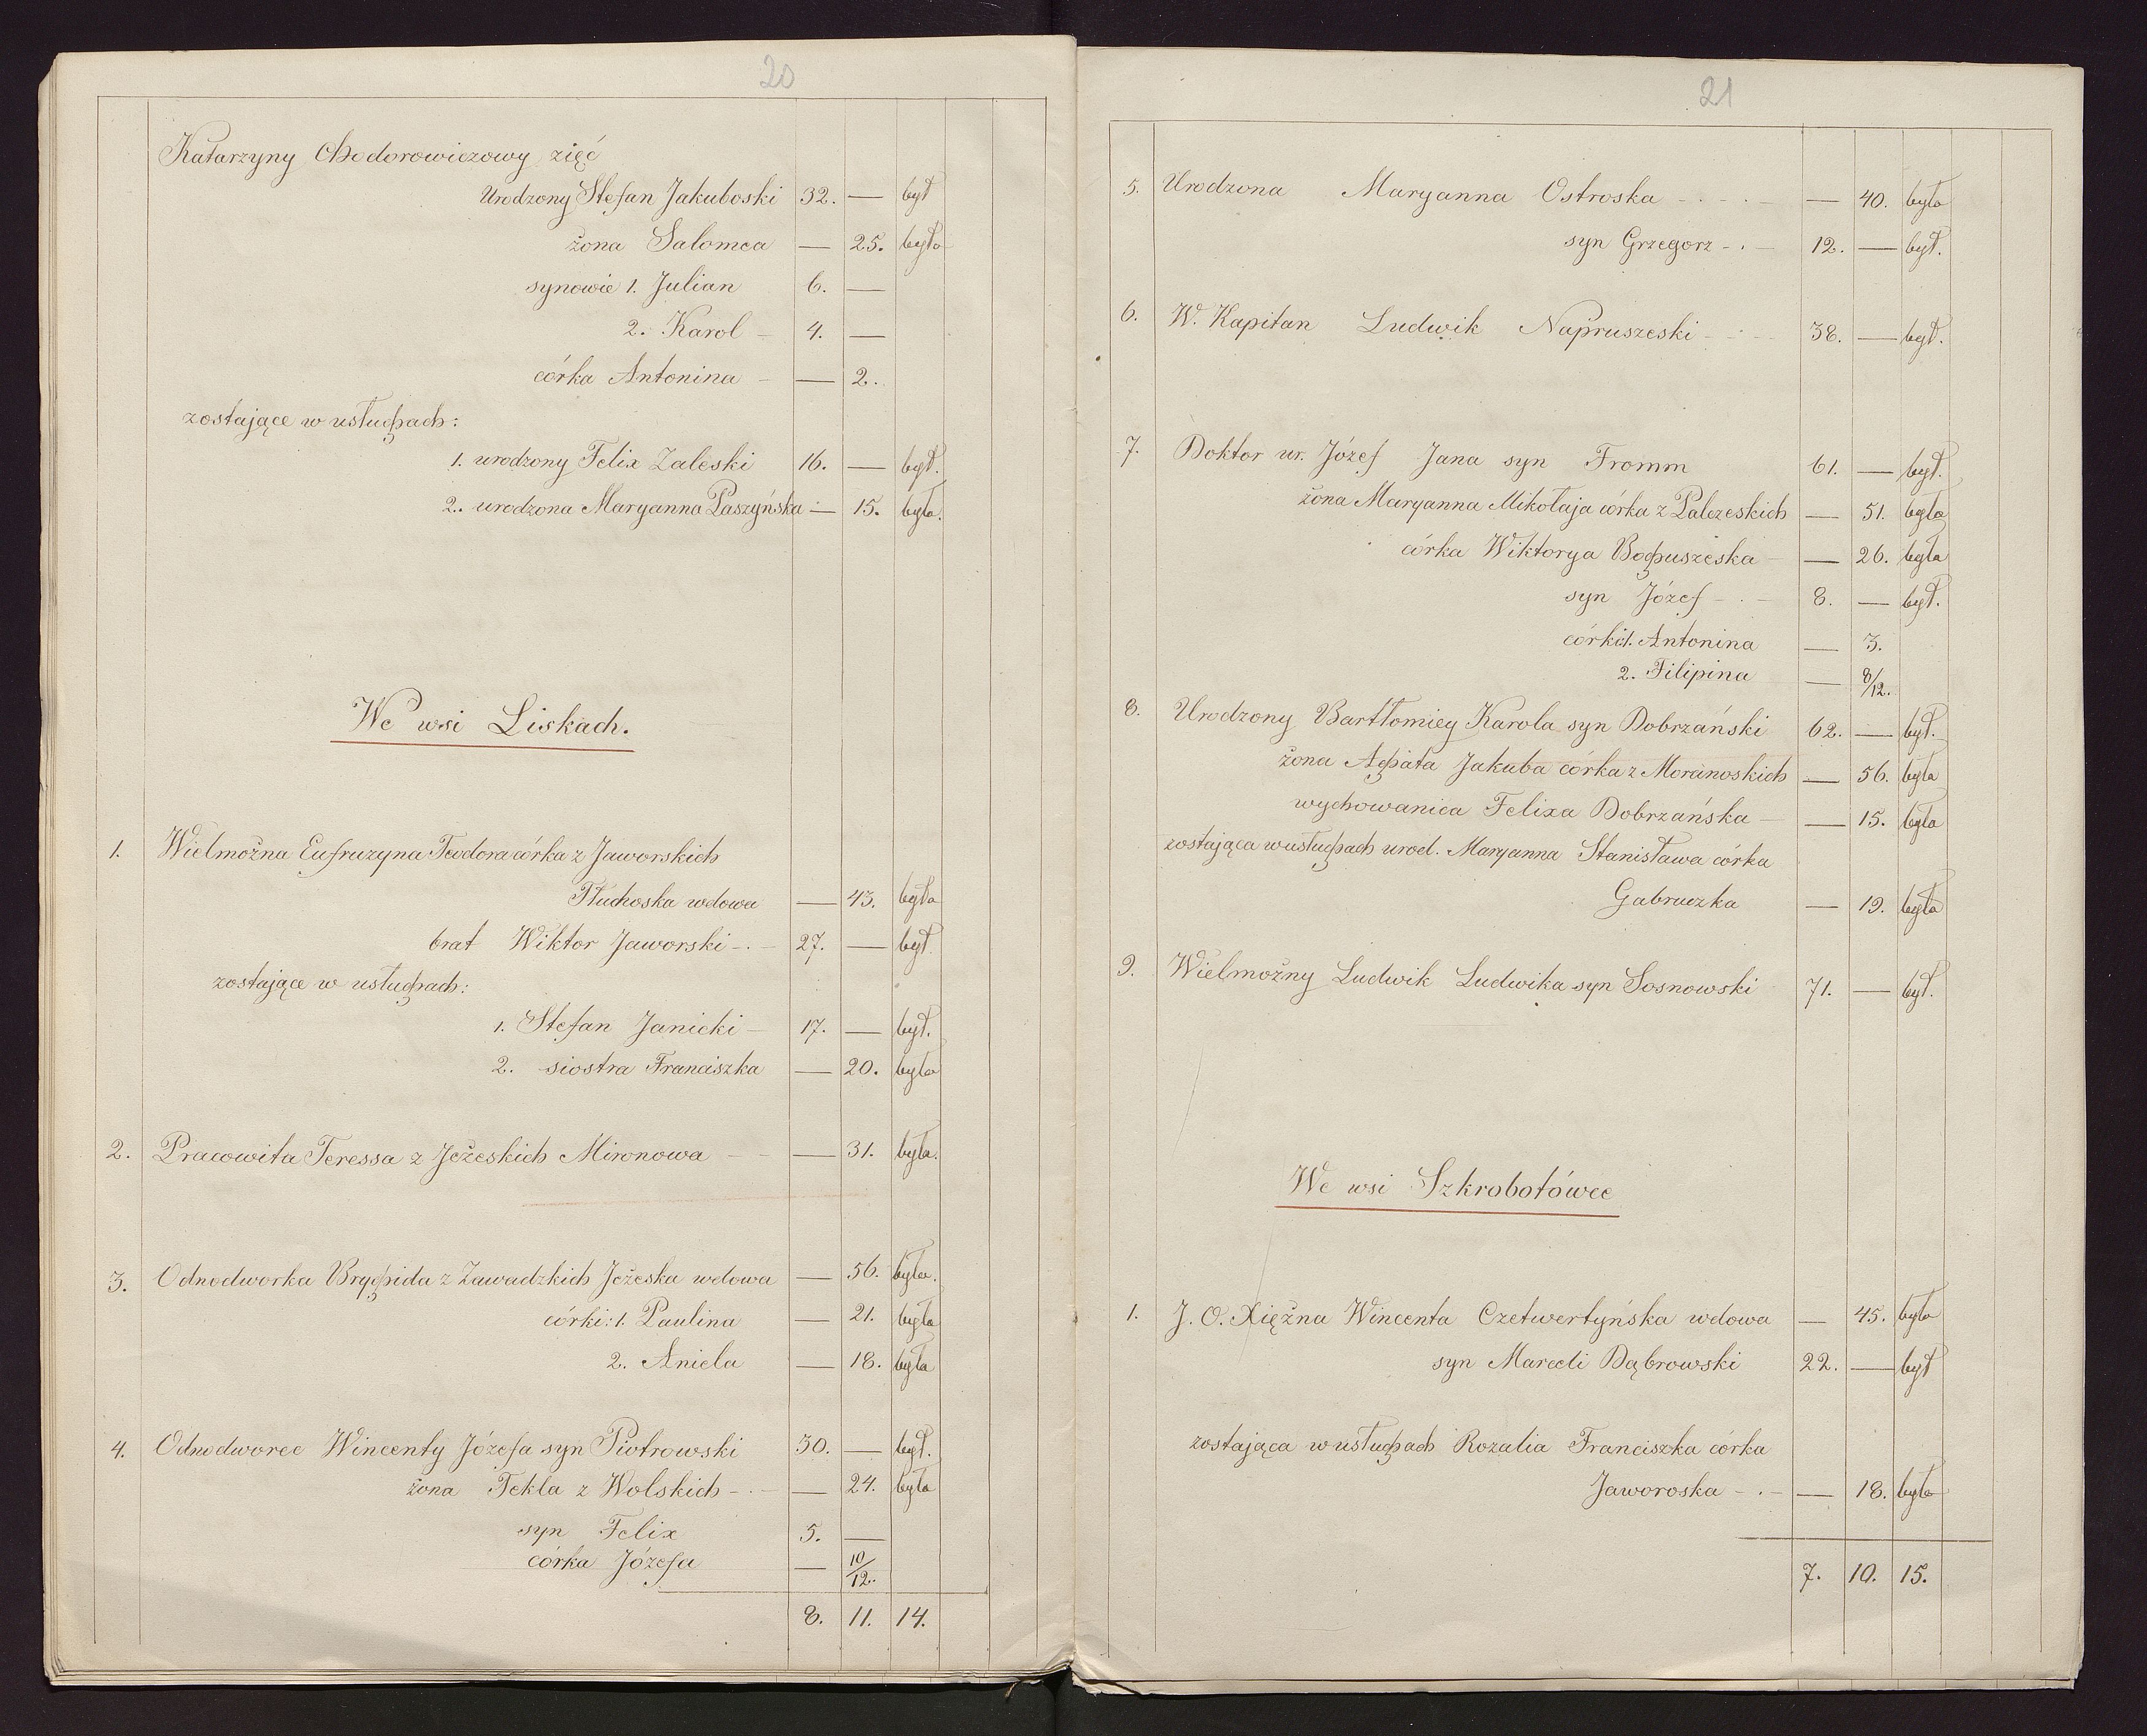 20
Katarzyny Chodorowiczowy zięć
Urodzony Stefan Jakuboski 32. — był
żona Salomea — 25. była
synowie 1. Julian 6. —
2. Karol – 4. —
córka Antonina – — 2.
zostające w usługach:
1. urodzony Felix Zaleski 16. — był.
2. urodzona Maryanna Paszyńska — 15. była.
We wsi Liskach.
1. Wielmożna Eufruzyna Teodora córka z Jaworskich
Tłuchoska wdowa — 43. była
brat Wiktor Jaworski -.- 27. — był.
zostające w usługach:
1. Stefan Janicki – 17. — był.
2. siostra Franciszka — 20. była
2. Pracowita Teressa z Jeżeskich Mironowa — — 31. była.
3. Odnodworka Brygida z Zawadzkich Jeżeska wdowa — 56. była.
córki: 1. Paulina — 21. była
2. Aniela — 18. była
4. Odnodworec Wincenty Józefa syn Piotrowski 30. — był.
żona Tekla z Wolskich -.- — 24. była
syn Felix 5. —
córka Józefa — 10/12.
8. 11. 14.
21
5. Urodzona Maryanna Ostroska - . - . - — 40. była
syn Grzegorz - . - 12. — był.
6. W. Kapitan Ludwik Napruszeski - . - 38. — był.
7. Doktor ur. Józef Jana syn Fromm 61. — był.
żona Maryanna Mikołaja córka z Palczeskich — 51. była
córka Wiktorya Boguszeska – — 26. była
syn Józef - . - 8. — był.
córki 1. Antonina — 3.
2. Filipina — 8/12.
8. Urodzony Bartłomiey Karola syn Dobrzański 62. — był.
żona Agata Jakuba córka z Moranoskich — 56. była
wychowanica Felixa Dobrzańska – — 15. była
zostająca w usługach urod. Maryanna Stanisława córka
Gabruczka — 19. była
9. Wielmożny Ludwik Ludwika syn Sosnowski 71. — był.
We wsi Szkrobotówce
1. J. O. Xiężna Wincenta Czetwertyńska wdowa — 45. była
syn Marceli Dąbrowski 22. — był
zostająca w usługach Rozalia Franciszka córka
Jaworoska - . - — 18. była
7. 10. 15.